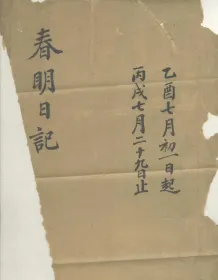 乙酉七月初一日起
丙戌七月二十九日止
春明日記